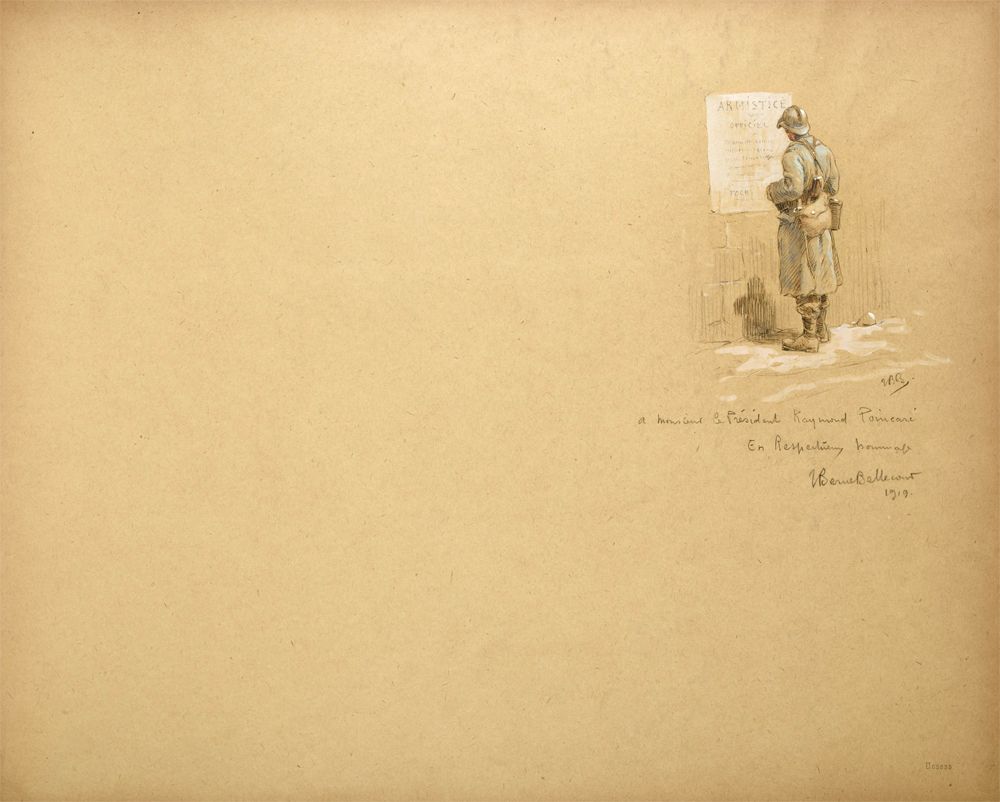 ARMISTICE
OFFICIEL
FOCH
VBB.
A Monsieur le Président Raymond Poincaré
En Respectueux hommage
VBerneBellecour
1919.